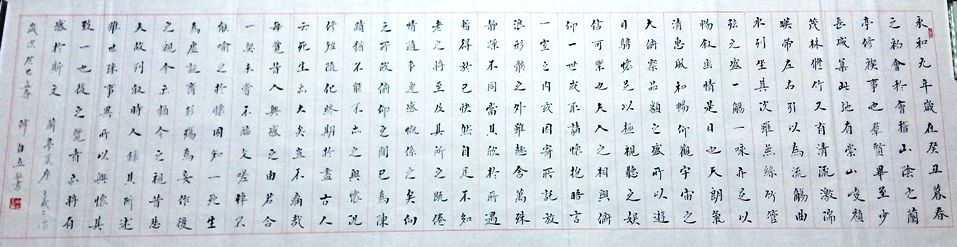 永和九年歲在癸丑暮春
之初會於會稽山陰之蘭
亭修禊事也群賢畢至少
長咸集此地有崇山峻嶺
茂林修竹又有清流激湍
映帶左右引以為流觴曲
水列坐其次雖無絲竹管
弦之盛一觴一咏亦足以
暢敘幽情是日也天朗氣
清惠風和暢仰觀宇宙之
大俯察品類之盛所以遊
目騁懷足以極視聽之娛
信可樂也夫人之相與俯
仰一世或取諸懷抱晤言
一室之內或因寄所託放
浪形骸之外雖趣舍萬殊
靜躁不同當其欣於所遇
暫得於己快然自足不知
老之將至及其所之既倦
情隨事遷感慨係之矣向
之所欣俯仰之間已為陳
跡猶不能不以之興懷況
修短隨化終期於盡古人
云死生亦大矣豈不痛哉
每覽昔人興感之由若合
一契未嘗不臨文嗟悼不
能喻之於懷固知一死生
為虛誕齊彭殤為妄作後
之視今亦猶今之視昔悲
夫故列敘時人錄其所述
雖世殊事異所以興懷其
致一也後之覽者亦將有
感於斯文 蘭亭集序
歲次癸巳暮春 書